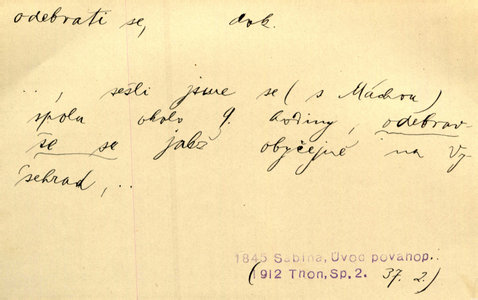 odebrati se, dok.
.., sešli jsme se (s Máchou)
spolu okolo 9. hodiny, odebrav-
še se jakž obyčejně na Vy-
šehrad,..
1845 Sabina, Úvod povahop.
(1912 Thon, Sp. 2. 37. 2)